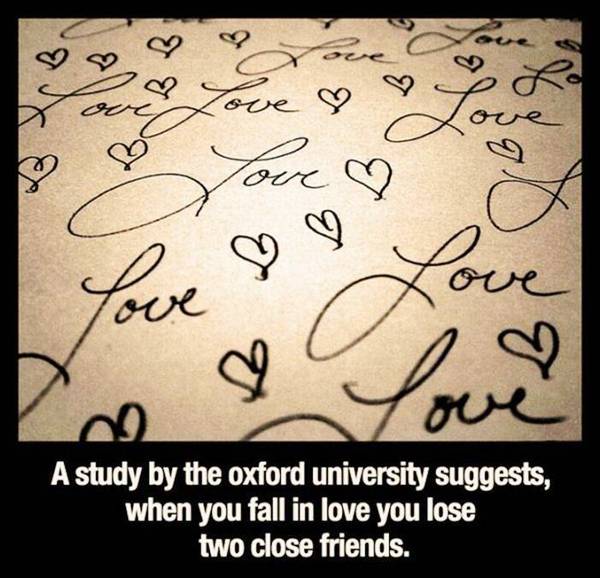 Love Love
Love Love Love Lo
Love L
Love Love
Love
A study by the oxford university suggests,
when you fall in love you lose
two close friends.